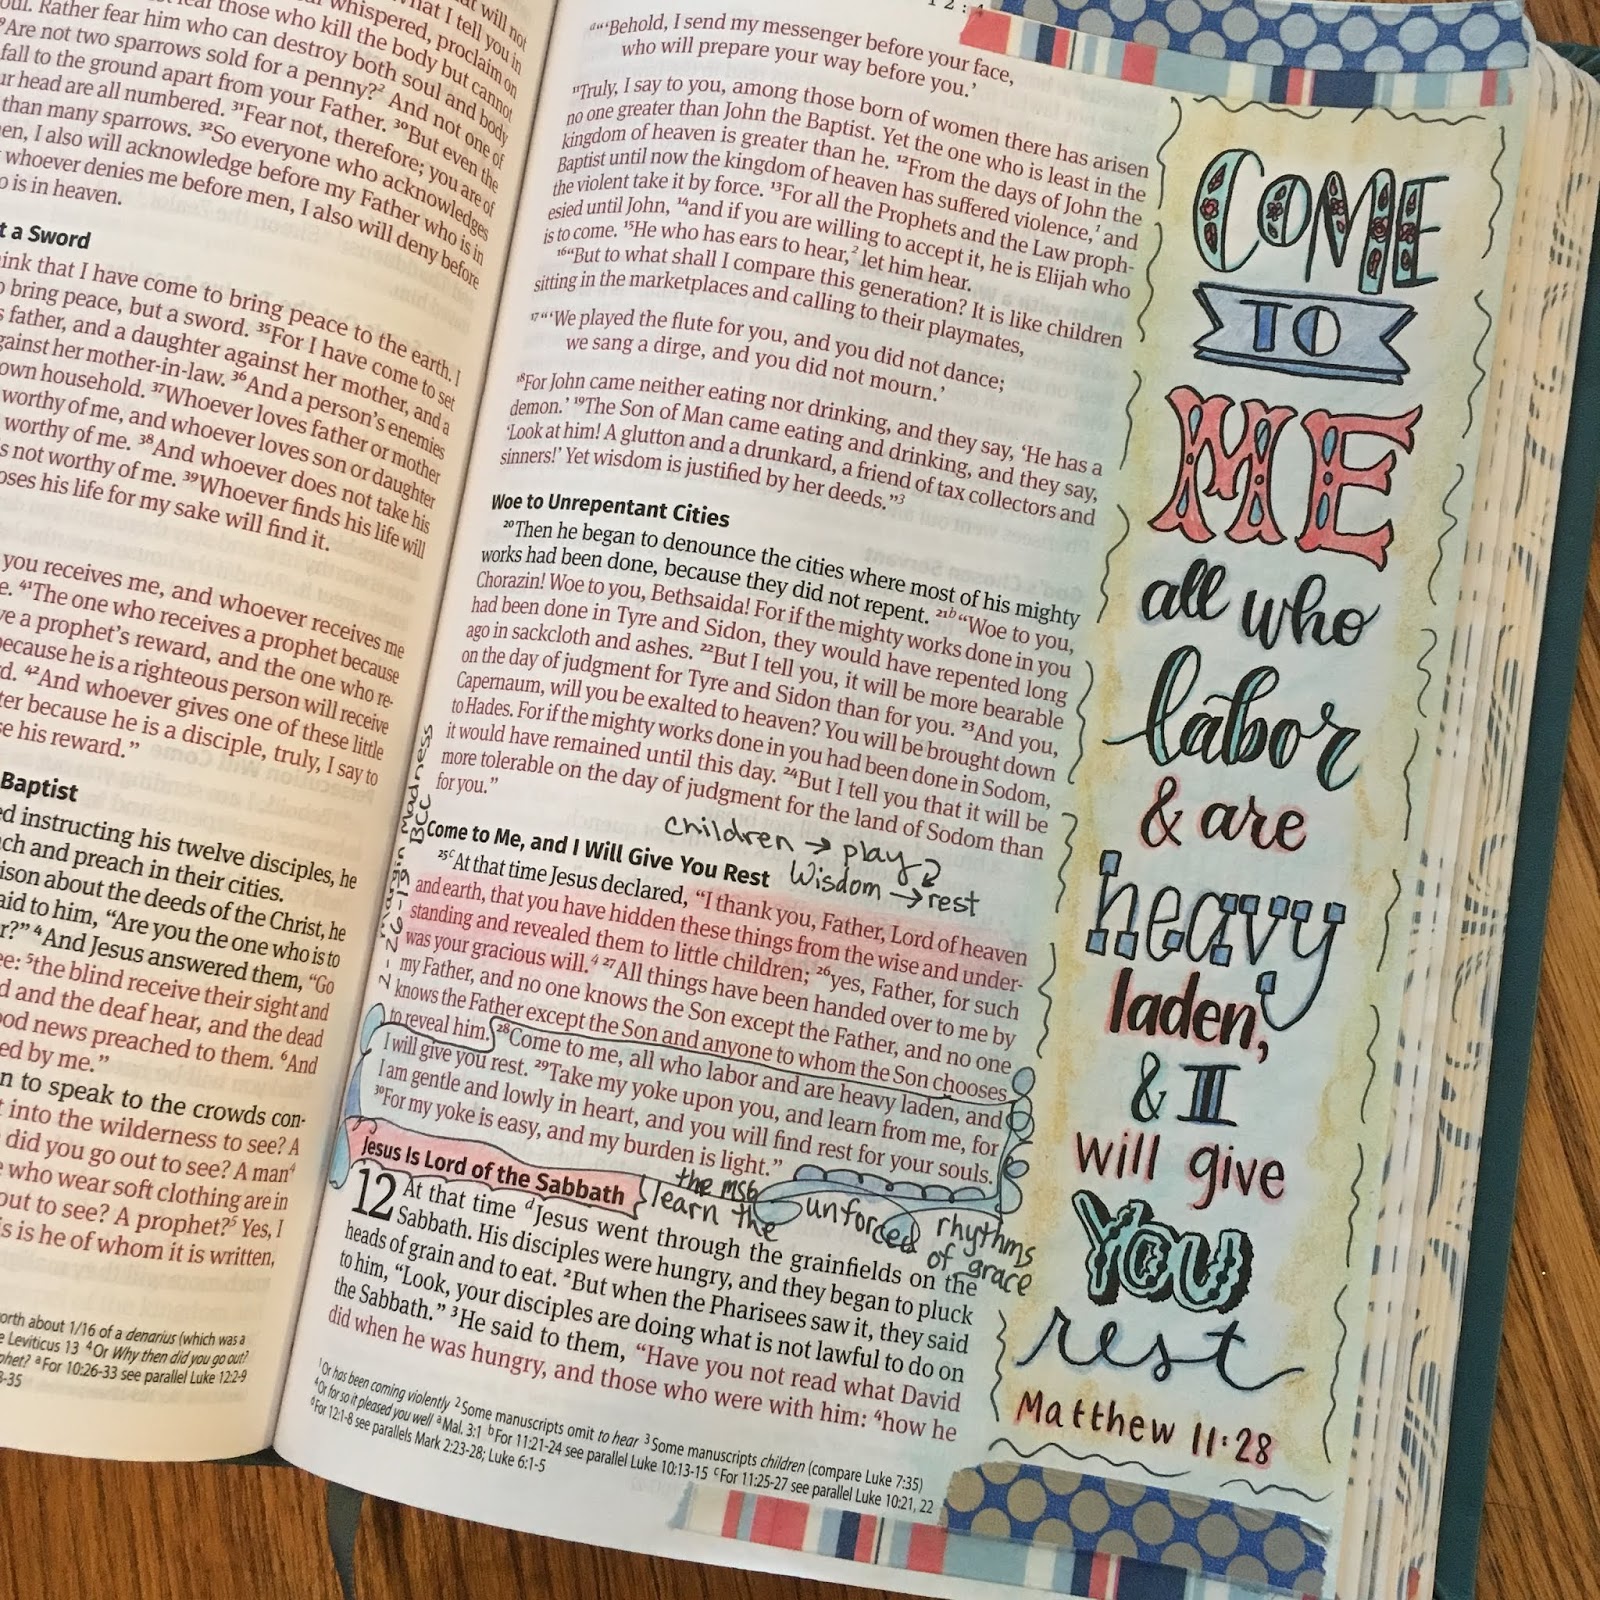 what I tell you in
whispered, proclaim on
fear those who kill the body but cannot
soul. Rather fear him who can destroy both soul and body
Are not two sparrows sold for a penny?² And not one of
fall to the ground apart from your Father. ³⁰But even the
ur head are all numbered. ³¹Fear not, therefore; you are of
than many sparrows. ³²So everyone who acknowledges
men, I also will acknowledge before my Father who is in
whoever denies me before men, I also will deny before
o is in heaven.
t a Sword
ink that I have come to bring peace to the earth. I
o bring peace, but a sword. ³⁵For I have come to set
s father, and a daughter against her mother, and a
against her mother-in-law. ³⁶And a person's enemies
own household. ³⁷Whoever loves father or mother
worthy of me, and whoever loves son or daughter
worthy of me. ³⁸And whoever does not take his
s not worthy of me. ³⁹Whoever finds his life will
oses his life for my sake will find it.
you receives me, and whoever receives me
e. ⁴¹The one who receives a prophet because
ve a prophet's reward, and the one who re-
because he is a righteous person will receive
d. ⁴²And whoever gives one of these little
ter because he is a disciple, truly, I say to
se his reward."
Baptist
ed instructing his twelve disciples, he
ach and preach in their cities.
ison about the deeds of the Christ, he
aid to him, "Are you the one who is to
r?" ⁴And Jesus answered them, "Go
ee: ⁵the blind receive their sight and
d and the deaf hear, and the dead
ood news preached to them. ⁶And
ed by me."
n to speak to the crowds con-
t into the wilderness to see? A
did you go out to see? A man⁴
who wear soft clothing are in
out to see? A prophet?⁵ Yes, I
is is he of whom it is written,
orth about 1/16 of a denarius (which was a
e Leviticus 13 ⁴Or Why then did you go out?
phet? ᵃFor 10:26-33 see parallel Luke 12:2-9
3-35
ᵃ"'Behold, I send my messenger before your face,
who will prepare your way before you.'
¹¹Truly, I say to you, among those born of women there has arisen
no one greater than John the Baptist. Yet the one who is least in the
kingdom of heaven is greater than he. ¹²From the days of John the
Baptist until now the kingdom of heaven has suffered violence,¹ and
the violent take it by force. ¹³For all the Prophets and the Law proph-
esied until John, ¹⁴and if you are willing to accept it, he is Elijah who
is to come. ¹⁵He who has ears to hear,² let him hear.
¹⁶"But to what shall I compare this generation? It is like children
sitting in the marketplaces and calling to their playmates,
¹⁷"'We played the flute for you, and you did not dance;
we sang a dirge, and you did not mourn.'
¹⁸For John came neither eating nor drinking, and they say, 'He has a
demon.' ¹⁹The Son of Man came eating and drinking, and they say,
'Look at him! A glutton and a drunkard, a friend of tax collectors and
sinners!' Yet wisdom is justified by her deeds."³
Woe to Unrepentant Cities
²⁰Then he began to denounce the cities where most of his mighty
works had been done, because they did not repent. ²¹ᵇ"Woe to you,
Chorazin! Woe to you, Bethsaida! For if the mighty works done in you
had been done in Tyre and Sidon, they would have repented long
ago in sackcloth and ashes. ²²But I tell you, it will be more bearable
on the day of judgment for Tyre and Sidon than for you. ²³And you,
Capernaum, will you be exalted to heaven? You will be brought down
to Hades. For if the mighty works done in you had been done in Sodom,
it would have remained until this day. ²⁴But I tell you that it will be
more tolerable on the day of judgment for the land of Sodom than
for you."
children → play
Come to Me, and I Will Give You Rest
Wisdom → rest
²⁵ᶜAt that time Jesus declared, "I thank you, Father, Lord of heaven
and earth, that you have hidden these things from the wise and under-
standing and revealed them to little children; ²⁶yes, Father, for such
was your gracious will.⁴ ²⁷All things have been handed over to me by
my Father, and no one knows the Son except the Father, and no one
knows the Father except the Son and anyone to whom the Son chooses
to reveal him. ²⁸Come to me, all who labor and are heavy laden, and
I will give you rest. ²⁹Take my yoke upon you, and learn from me, for
I am gentle and lowly in heart, and you will find rest for your souls.
³⁰For my yoke is easy, and my burden is light."
2-26-19 Margin Madness
BCC
Jesus Is Lord of the Sabbath
the MSG
learn the unforced rhythms
of grace
12 At that time ᵈJesus went through the grainfields on the
Sabbath. His disciples were hungry, and they began to pluck
heads of grain and to eat. ²But when the Pharisees saw it, they said
to him, "Look, your disciples are doing what is not lawful to do on
the Sabbath." ³He said to them, "Have you not read what David
did when he was hungry, and those who were with him: ⁴how he
¹Or has been coming violently ²Some manuscripts omit to hear ³Some manuscripts children (compare Luke 7:35)
⁴Or for so it pleased you well ᵃMal. 3:1 ᵇFor 11:21-24 see parallel Luke 10:13-15 ᶜFor 11:25-27 see parallel Luke 10:21, 22
ᵈFor 12:1-8 see parallels Mark 2:23-28; Luke 6:1-5
COME
TO
ME
all who
labor
& are
heavy
laden,
& I
will give
YOU
rest
Matthew 11:28